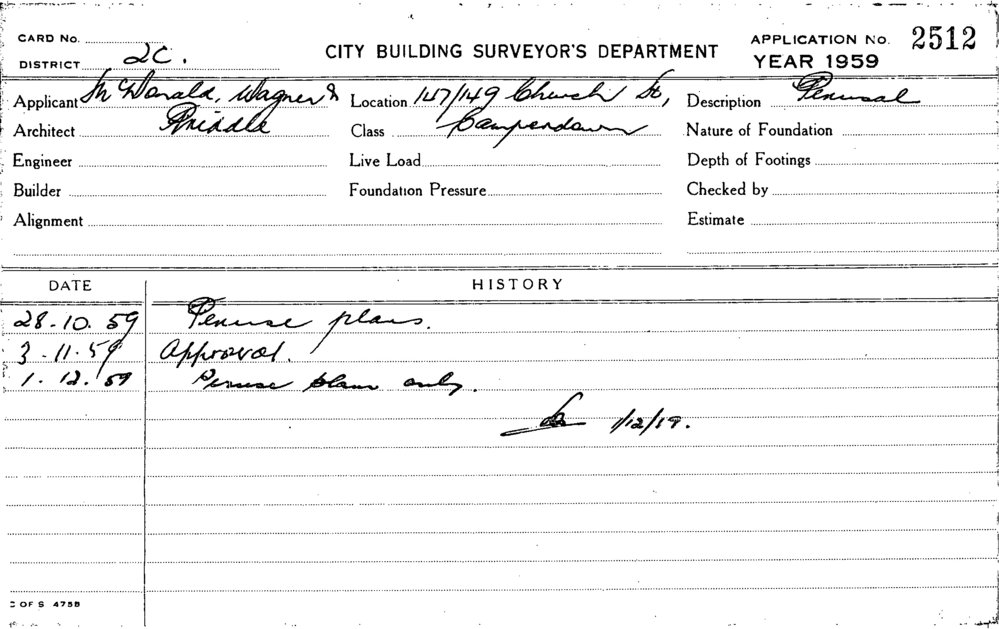 CARD No.
DISTRICT 2C.
CITY BUILDING SURVEYOR'S DEPARTMENT
APPLICATION No. 2512
YEAR 1959
Applicant McDonald, Wagner & Location 147/149 Church St, Description Perusal
Architect Priddle Class Camperdown Nature of Foundation
Engineer Live Load Depth of Footings
Builder Foundation Pressure Checked by
Alignment Estimate
DATE HISTORY
28.10.59 Peruse plans.
3.11.59 Approval.
1.12.59 Peruse plans only.
1/12/59.
C OF S 475B